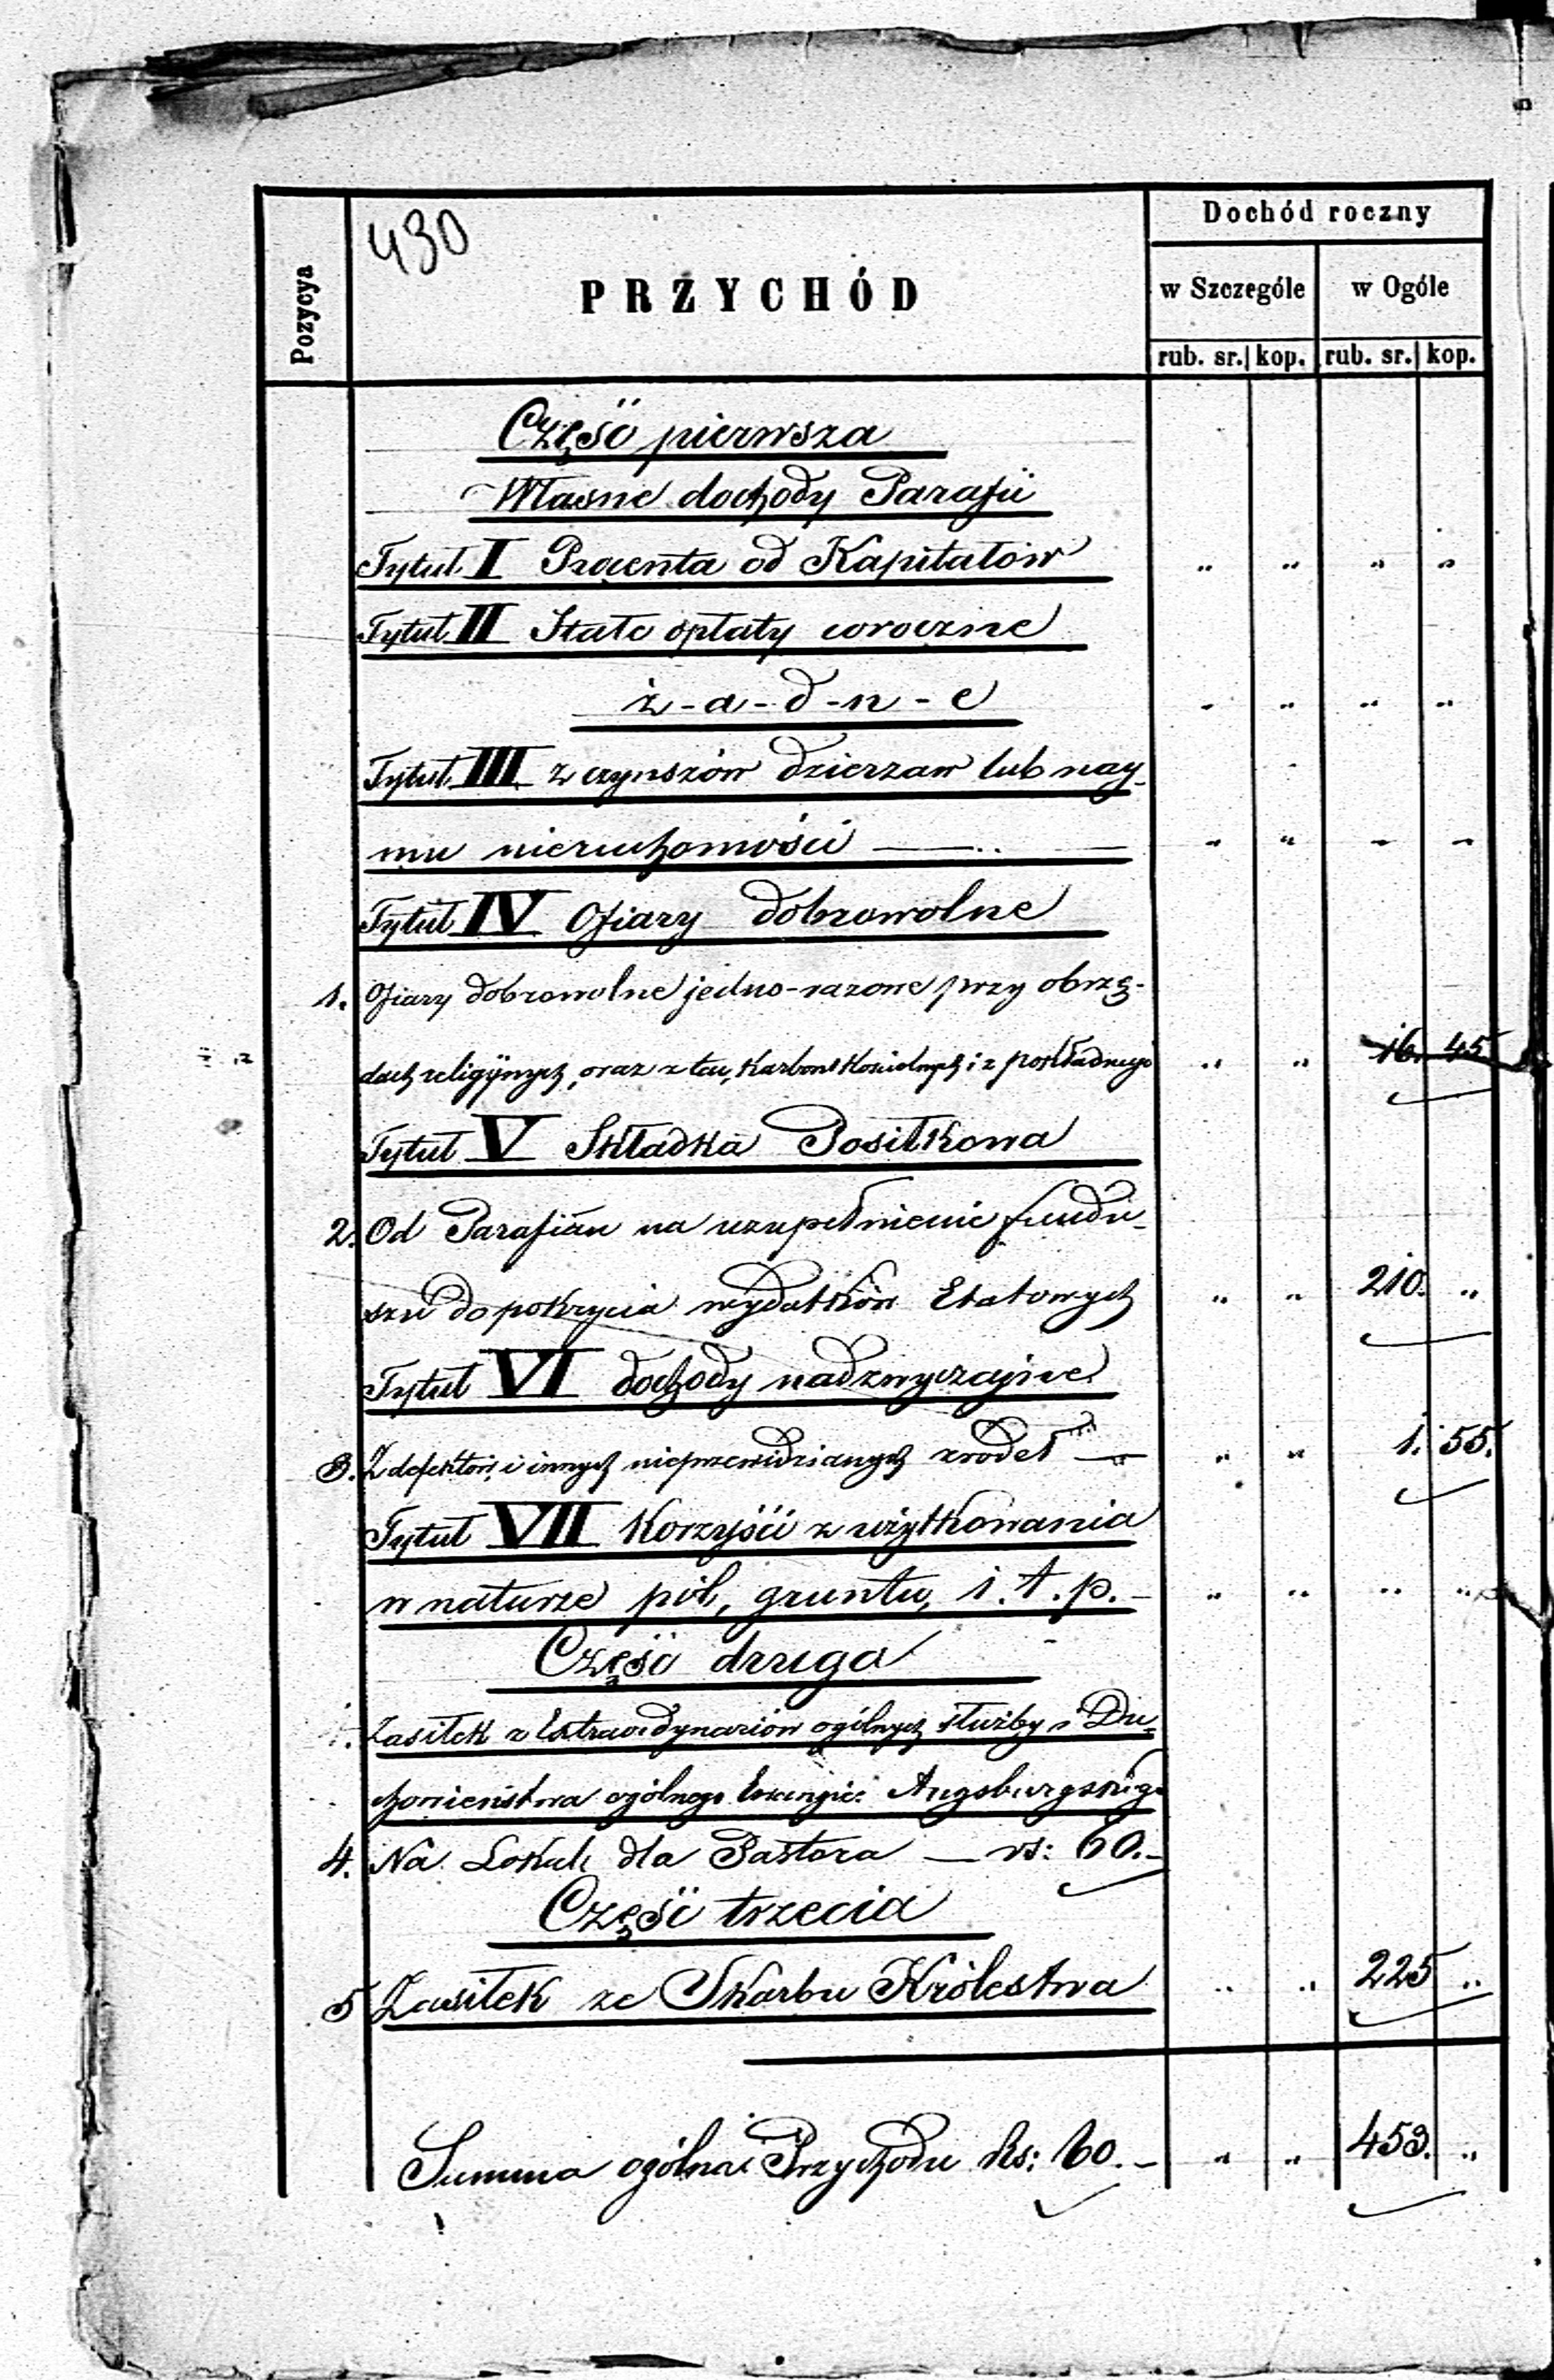 430
Pozycya
PRZYCHÓD
Dochód roczny
w Szczególe w Ogóle
rub. sr. kop. rub. sr. kop.
Część pierwsza
Własne dochody Parafii
Tytuł I Procenta od Kapitałów " " " "
Tytuł II Stałe opłaty coroczne
ż-a-d-n-e " " " "
Tytuł III z czynszów dzierzaw lub nay-
mu nieruchomości — " " " "
Tytuł IV Ofiary dobrowolne
1. Ofiary dobrowolne jedno-razowe przy obrzę-
dach religijnych, oraz z Karbon Kościelnych i z pokładnego " " 16. 45
Tytuł V Składka Posiłkowa
2. Od Parafian na uzupełnienie fundu-
szu do pokrycia wydatków Etatowych " " 210. "
Tytuł VI dochody nadzwyczajne
3. Z defektów i innych nieprzewidzianych zrodeł — " " 1. 55.
Tytuł VII Korzyści z użytkowania
w naturze pól, gruntu, i.t.p. - " " " "
Część druga
Zasiłek z Extraordynariów ogólnych służby i Du-
chowieństwa ogólnego Ewangie: Augsburgskiego
4. Na Lokal dla Pastora — rs: 60.-
Część trzecia
5 Zasiłek ze Skarbu Królestwa " " 225 "
Summa ogólna Przychodu Rs: 60.- " " 453. "